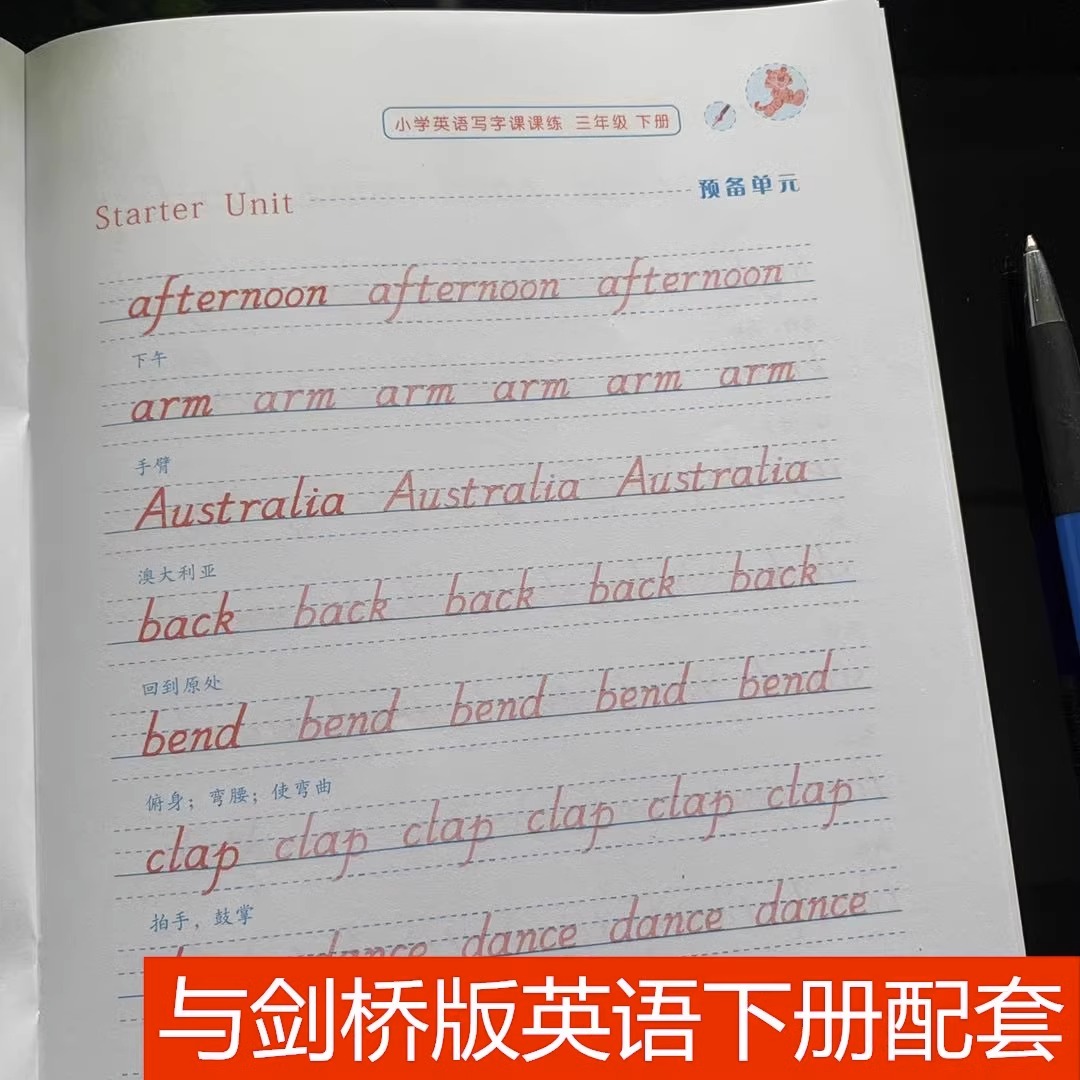 小学英语写字课课练 三年级 下册
Starter Unit 预备单元
afternoon afternoon afternoon
下午
arm arm arm arm arm arm
手臂
Australia Australia Australia
澳大利亚
back back back back back
回到原处
bend bend bend bend bend
俯身；弯腰；使弯曲
clap clap clap clap clap clap
拍手，鼓掌
dance dance dance dance
与剑桥版英语下册配套